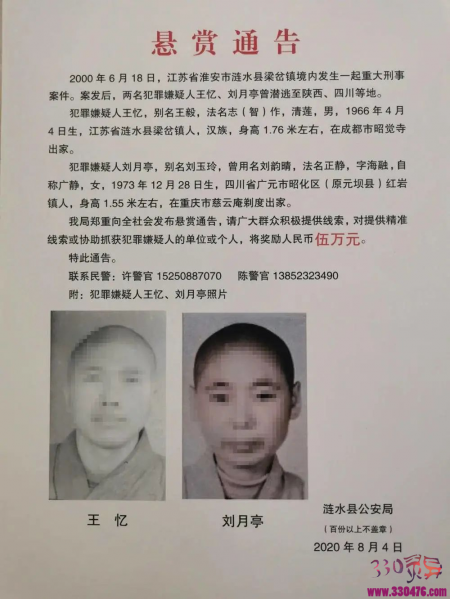 悬赏通告
2000年6月18日，江苏省淮安市涟水县梁岔镇境内发生一起重大刑事
案件。案发后，两名犯罪嫌疑人王忆、刘月亭曾潜逃至陕西、四川等地。
犯罪嫌疑人王忆，别名王毅，法名志（智）作，清莲，男，1966年4月
4日生，江苏省涟水县梁岔镇人，汉族，身高1.76米左右，在成都市昭觉寺
出家。
犯罪嫌疑人刘月亭，别名刘玉玲，曾用名刘韵晴，法名正静，字海融，自
称广静，女，1973年12月28日生，四川省广元市昭化区（原元坝县）红岩
镇人，身高1.55米左右，在重庆市慈云庵剃度出家。
我局郑重向全社会发布悬赏通告，请广大群众积极提供线索，对提供精准
线索或协助抓获犯罪嫌疑人的单位或个人，将奖励人民币伍万元。
特此通告。
联系民警：许警官 15250887070 陈警官 13852323490
附：犯罪嫌疑人王忆、刘月亭照片
王 忆
刘月亭
涟水县公安局
（百份以上不盖章）
2020年8月4日
330灵异
www.330476.com